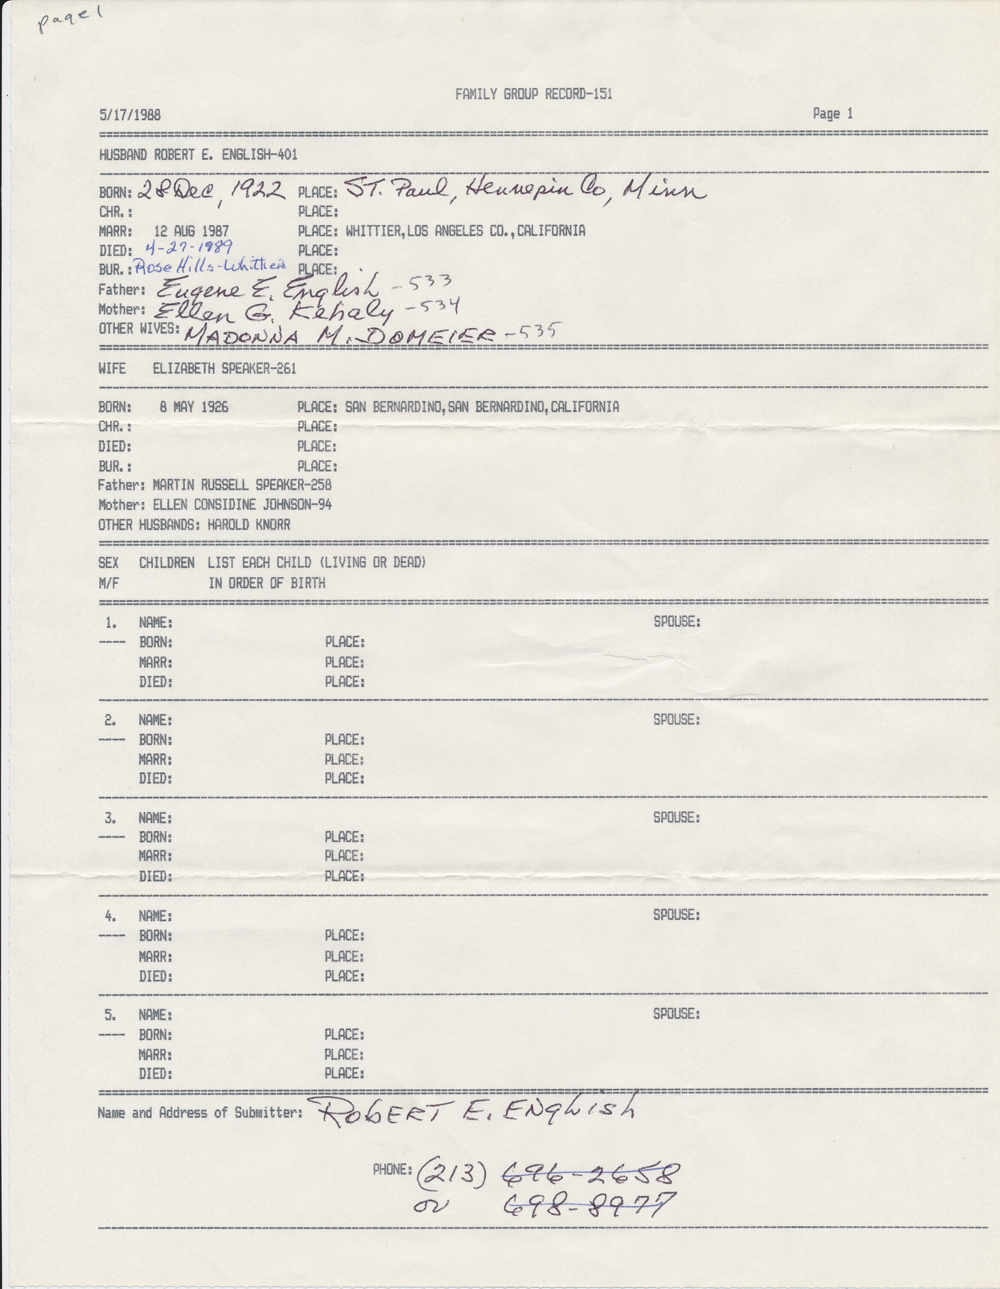 page 1
FAMILY GROUP RECORD-151
5/17/1988 Page 1
HUSBAND ROBERT E. ENGLISH-401
BORN: 28 Dec, 1922 PLACE: ST. Paul, Hennepin Co, Minn
CHR.: PLACE:
MARR: 12 AUG 1987 PLACE: WHITTIER,LOS ANGELES CO.,CALIFORNIA
DIED: 4-27-1989 PLACE:
BUR.: Rose Hills-Whittier PLACE:
Father: Eugene E. English -533
Mother: Ellen G. Kehaly -534
OTHER WIVES: MADONNA M. DOMEIER -535
WIFE ELIZABETH SPEAKER-261
BORN: 8 MAY 1926 PLACE: SAN BERNARDINO,SAN BERNARDINO,CALIFORNIA
CHR.: PLACE:
DIED: PLACE:
BUR.: PLACE:
Father: MARTIN RUSSELL SPEAKER-258
Mother: ELLEN CONSIDINE JOHNSON-94
OTHER HUSBANDS: HAROLD KNORR
SEX CHILDREN LIST EACH CHILD (LIVING OR DEAD)
M/F IN ORDER OF BIRTH
1. NAME: SPOUSE:
---- BORN: PLACE:
MARR: PLACE:
DIED: PLACE:
2. NAME: SPOUSE:
---- BORN: PLACE:
MARR: PLACE:
DIED: PLACE:
3. NAME: SPOUSE:
---- BORN: PLACE:
MARR: PLACE:
DIED: PLACE:
4. NAME: SPOUSE:
---- BORN: PLACE:
MARR: PLACE:
DIED: PLACE:
5. NAME: SPOUSE:
---- BORN: PLACE:
MARR: PLACE:
DIED: PLACE:
Name and Address of Submitter: ROBERT E. ENGLISH
PHONE: (213) 696-2658
or 698-8977